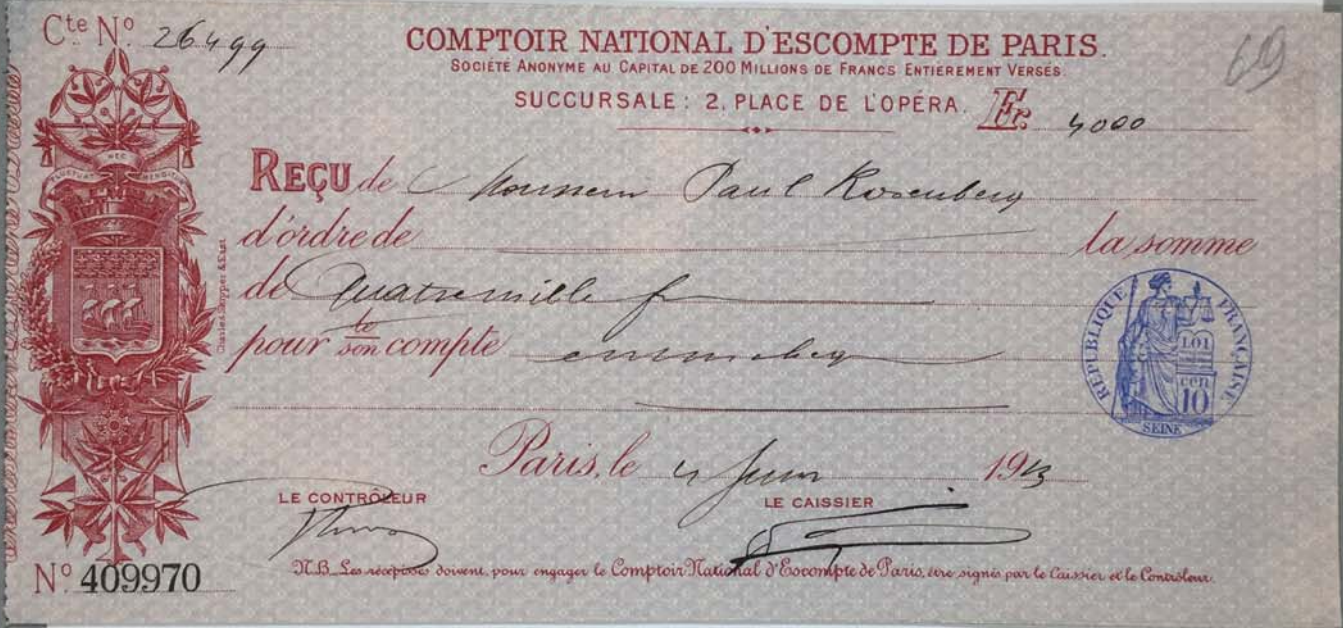 Cte No. 26499
COMPTOIR NATIONAL D'ESCOMPTE DE PARIS.
SOCIÉTÉ ANONYME AU CAPITAL DE 200 MILLIONS DE FRANCS ENTIÈREMENT VERSÉS.
69
SUCCURSALE : 2, PLACE DE L'OPÉRA. Fr. 4000
FLUCTUAT NEC MERGITUR
REÇU de Monsieur Paul Rosenberg
d'ordre de la somme
de Quatre mille f
pour le son compte
RÉPUBLIQUE FRANÇAISE
LOI
cen
10
SEINE
Paris, le 4 Juin 1913
LE CONTRÔLEUR LE CAISSIER
No 409970
N.B. Les récépissés doivent, pour engager le Comptoir National d'Escompte de Paris, être signés par le Caissier et le Contrôleur.